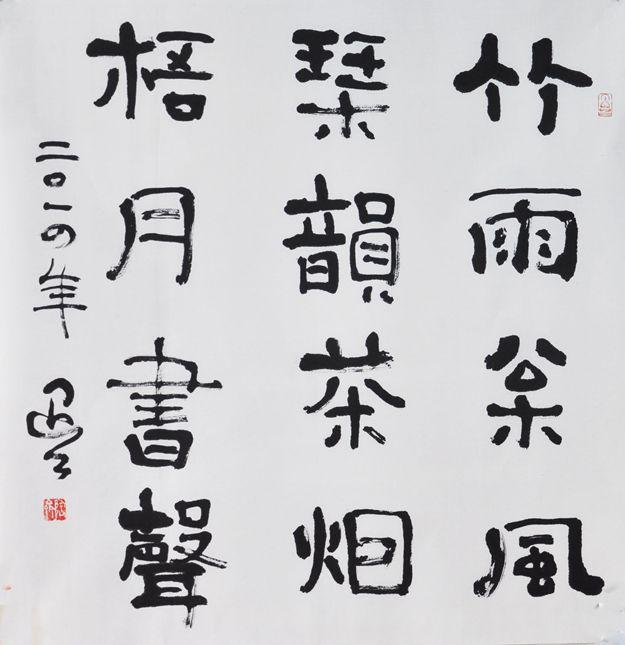 竹雨枀風
琹韻茶烟
梧月書聲
二〇一四年